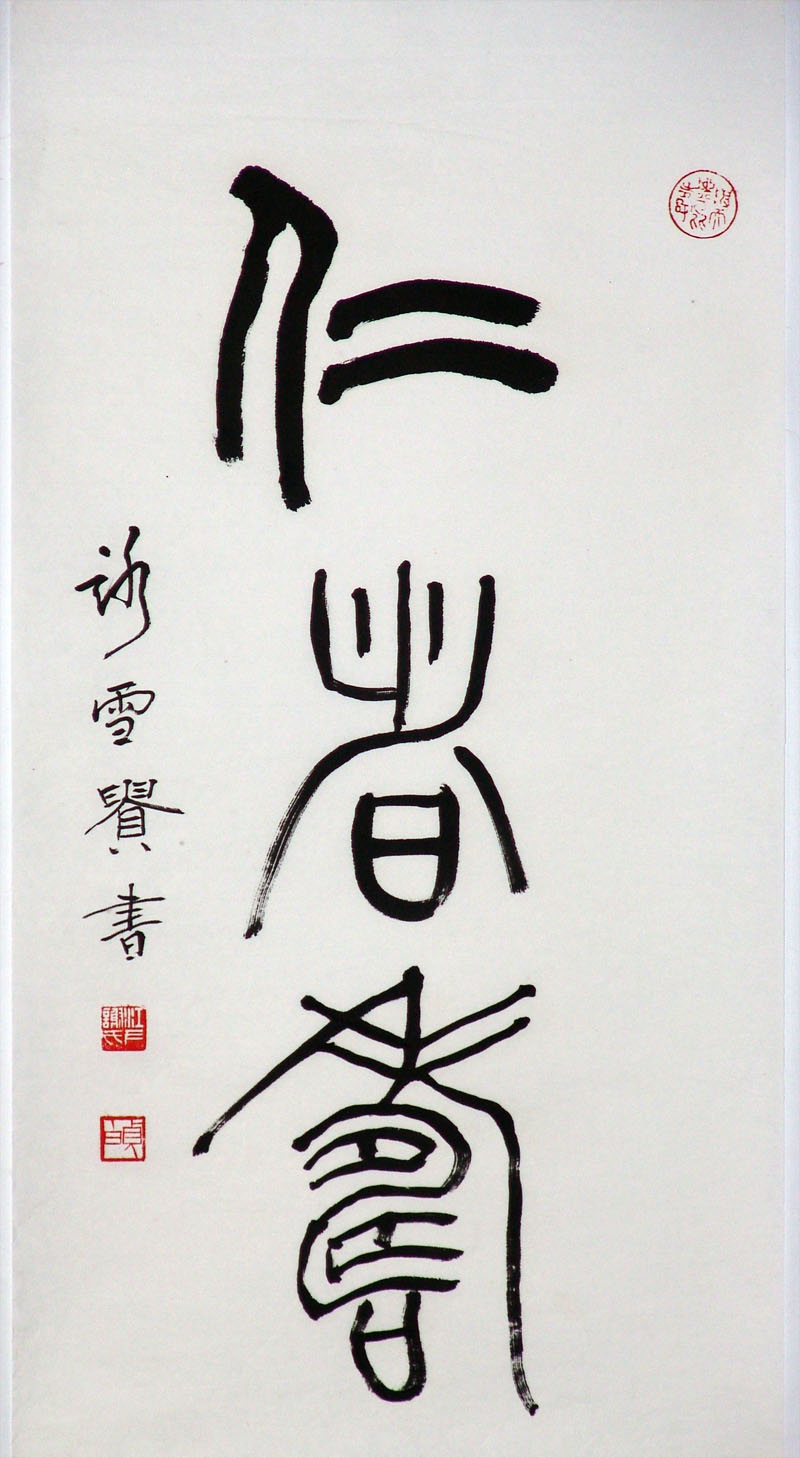 仁者壽
詠雪賢書